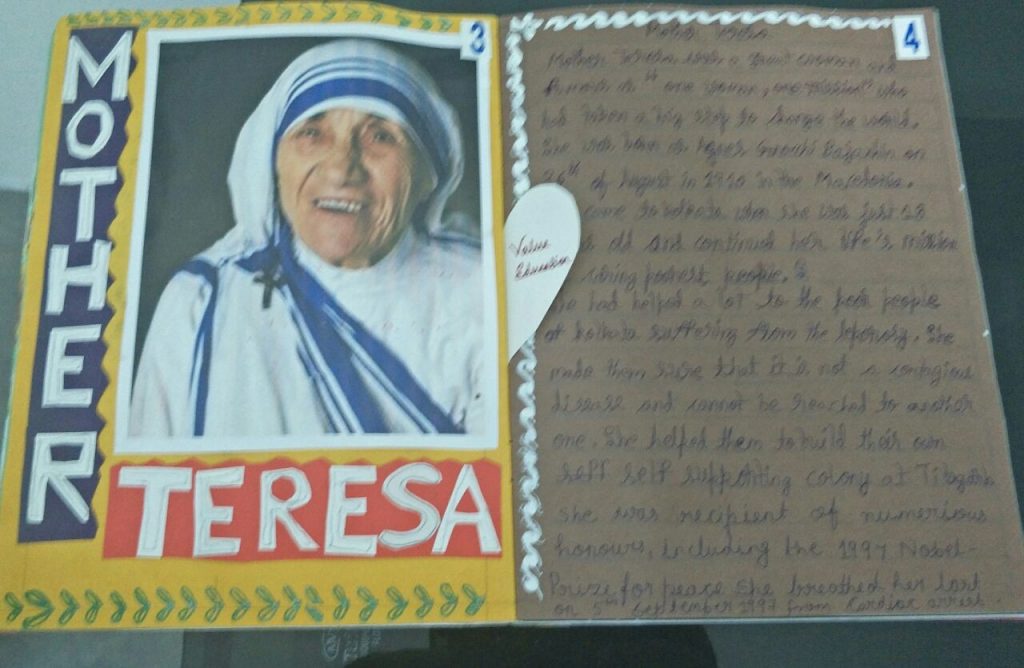 MOTHER
TERESA
3
Value
Education
4
Mother Teresa
Mother Teresa was a great woman and
"one woman, one mission" who
had taken a big step to change the world.
She was born as Agnes Gonxhi Bojaxhiu on
26th of August in 1910 in the Macedonia.
came to kolkata when she was just 18
old and continued her life's mission
poorest people.
She had helped a lot to the poor people
of kolkata suffering from the leporsy. She
made them that it is not a contagious
disease and cannot be reached to another
one. She helped them to build their own
self supporting colony at Titagarh
she was recipient of numerious
honours, including the 1997 Nobel-
Prize for peace she breathed her last
on 5th September 1997 from Cardiac arrest.